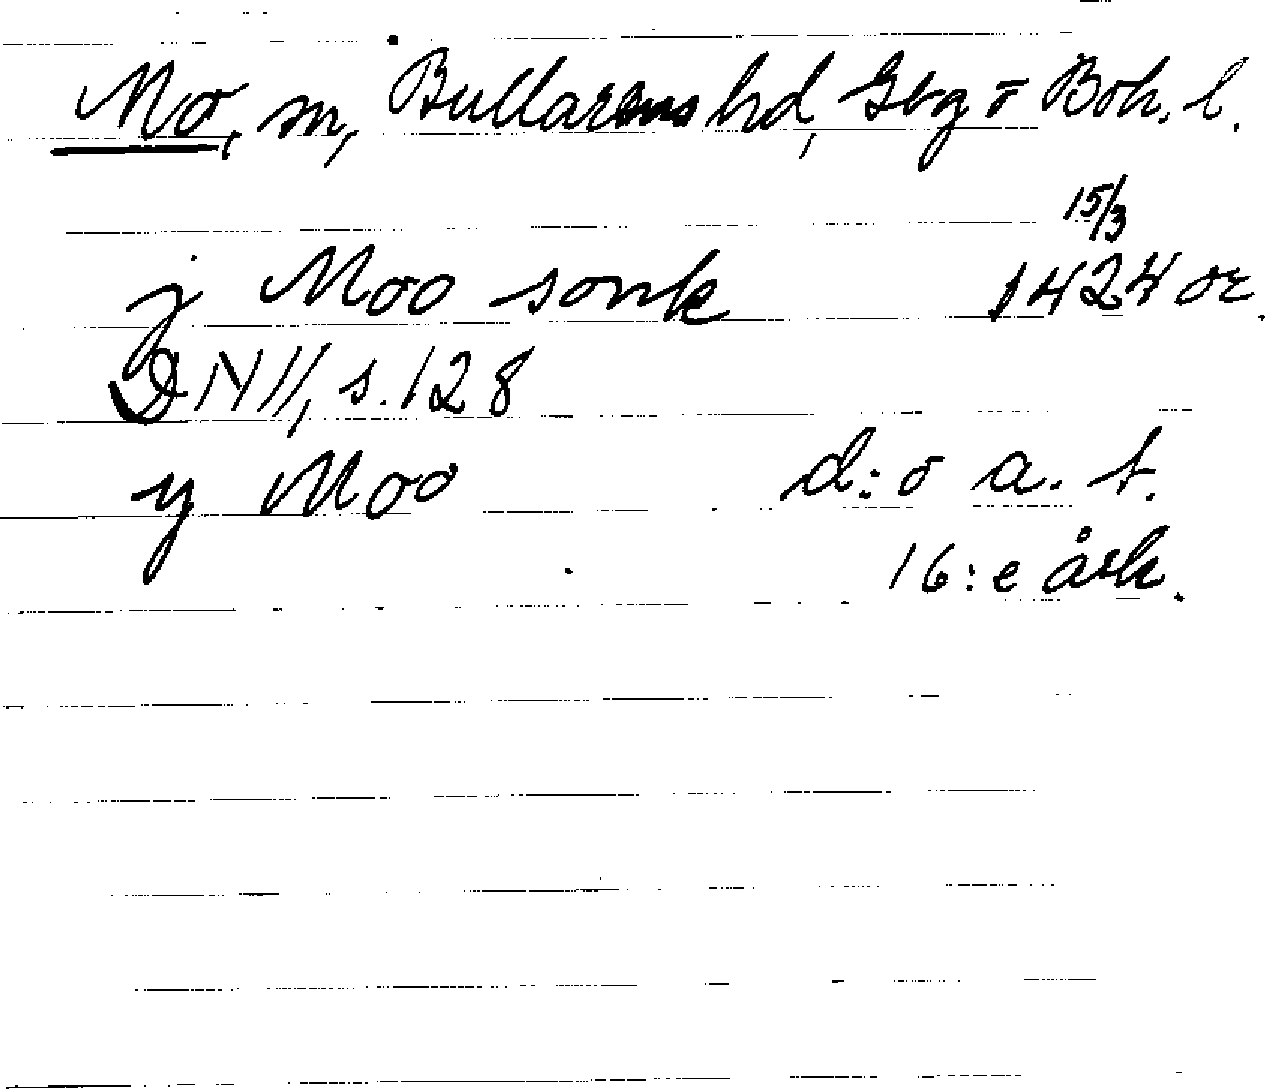 Mo, sn, Bullarens hd, Gbg o Boh. l.
15/3
j Moo sonk 1424 or.
DN II, s. 128
y Moo d:o a. t.
16:e årh.